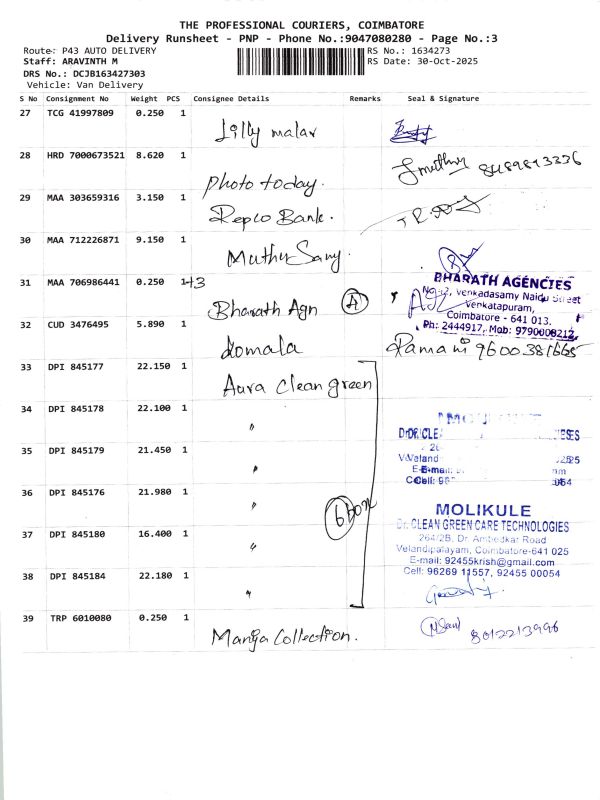 THE PROFESSIONAL COURIERS, COIMBATORE
Delivery Runsheet - PNP - Phone No.:9047080280 - Page No.:3
Route: P43 AUTO DELIVERY
RS No.: 1634273
Staff: ARAVINTH M
RS Date: 30-Oct-2025
DRS No.: DCJB163427303
Vehicle: Van Delivery
S No Consignment No Weight PCS Consignee Details Remarks Seal & Signature
27 TCG 41997809 0.250 1
Lilly malar
28 HRD 7000673521 8.620 1
photo today.
29 MAA 303659316 3.150 1
Repco Bank.
30 MAA 712226871 9.150 1
Muthu Samy
31 MAA 706986441 0.250 1+3
Bharath Agn
BHARATH AGENCIES
Venkadasamy Naidu Street
Venkatapuram,
Coimbatore - 641 013.
Ph: 2444917, Mob: 9790008212
32 CUD 3476495 5.890 1
Komala
Ramani 9600381665
33 DPI 845177 22.150 1
Aura Clean green
34 DPI 845178 22.100 1
"
35 DPI 845179 21.450 1
"
36 DPI 845176 21.980 1
"
6 box
37 DPI 845180 16.400 1
"
MOLIKULE
Dr. CLEAN GREEN CARE TECHNOLOGIES
264/2B, Dr. Ambedkar Road
Velandipalayam, Coimbatore-641 025
E-mail: 92455krish@gmail.com
Cell: 96269 11557, 92455 00054
38 DPI 845184 22.180 1
"
39 TRP 6010080 0.250 1
Manja Collection.
8012213996